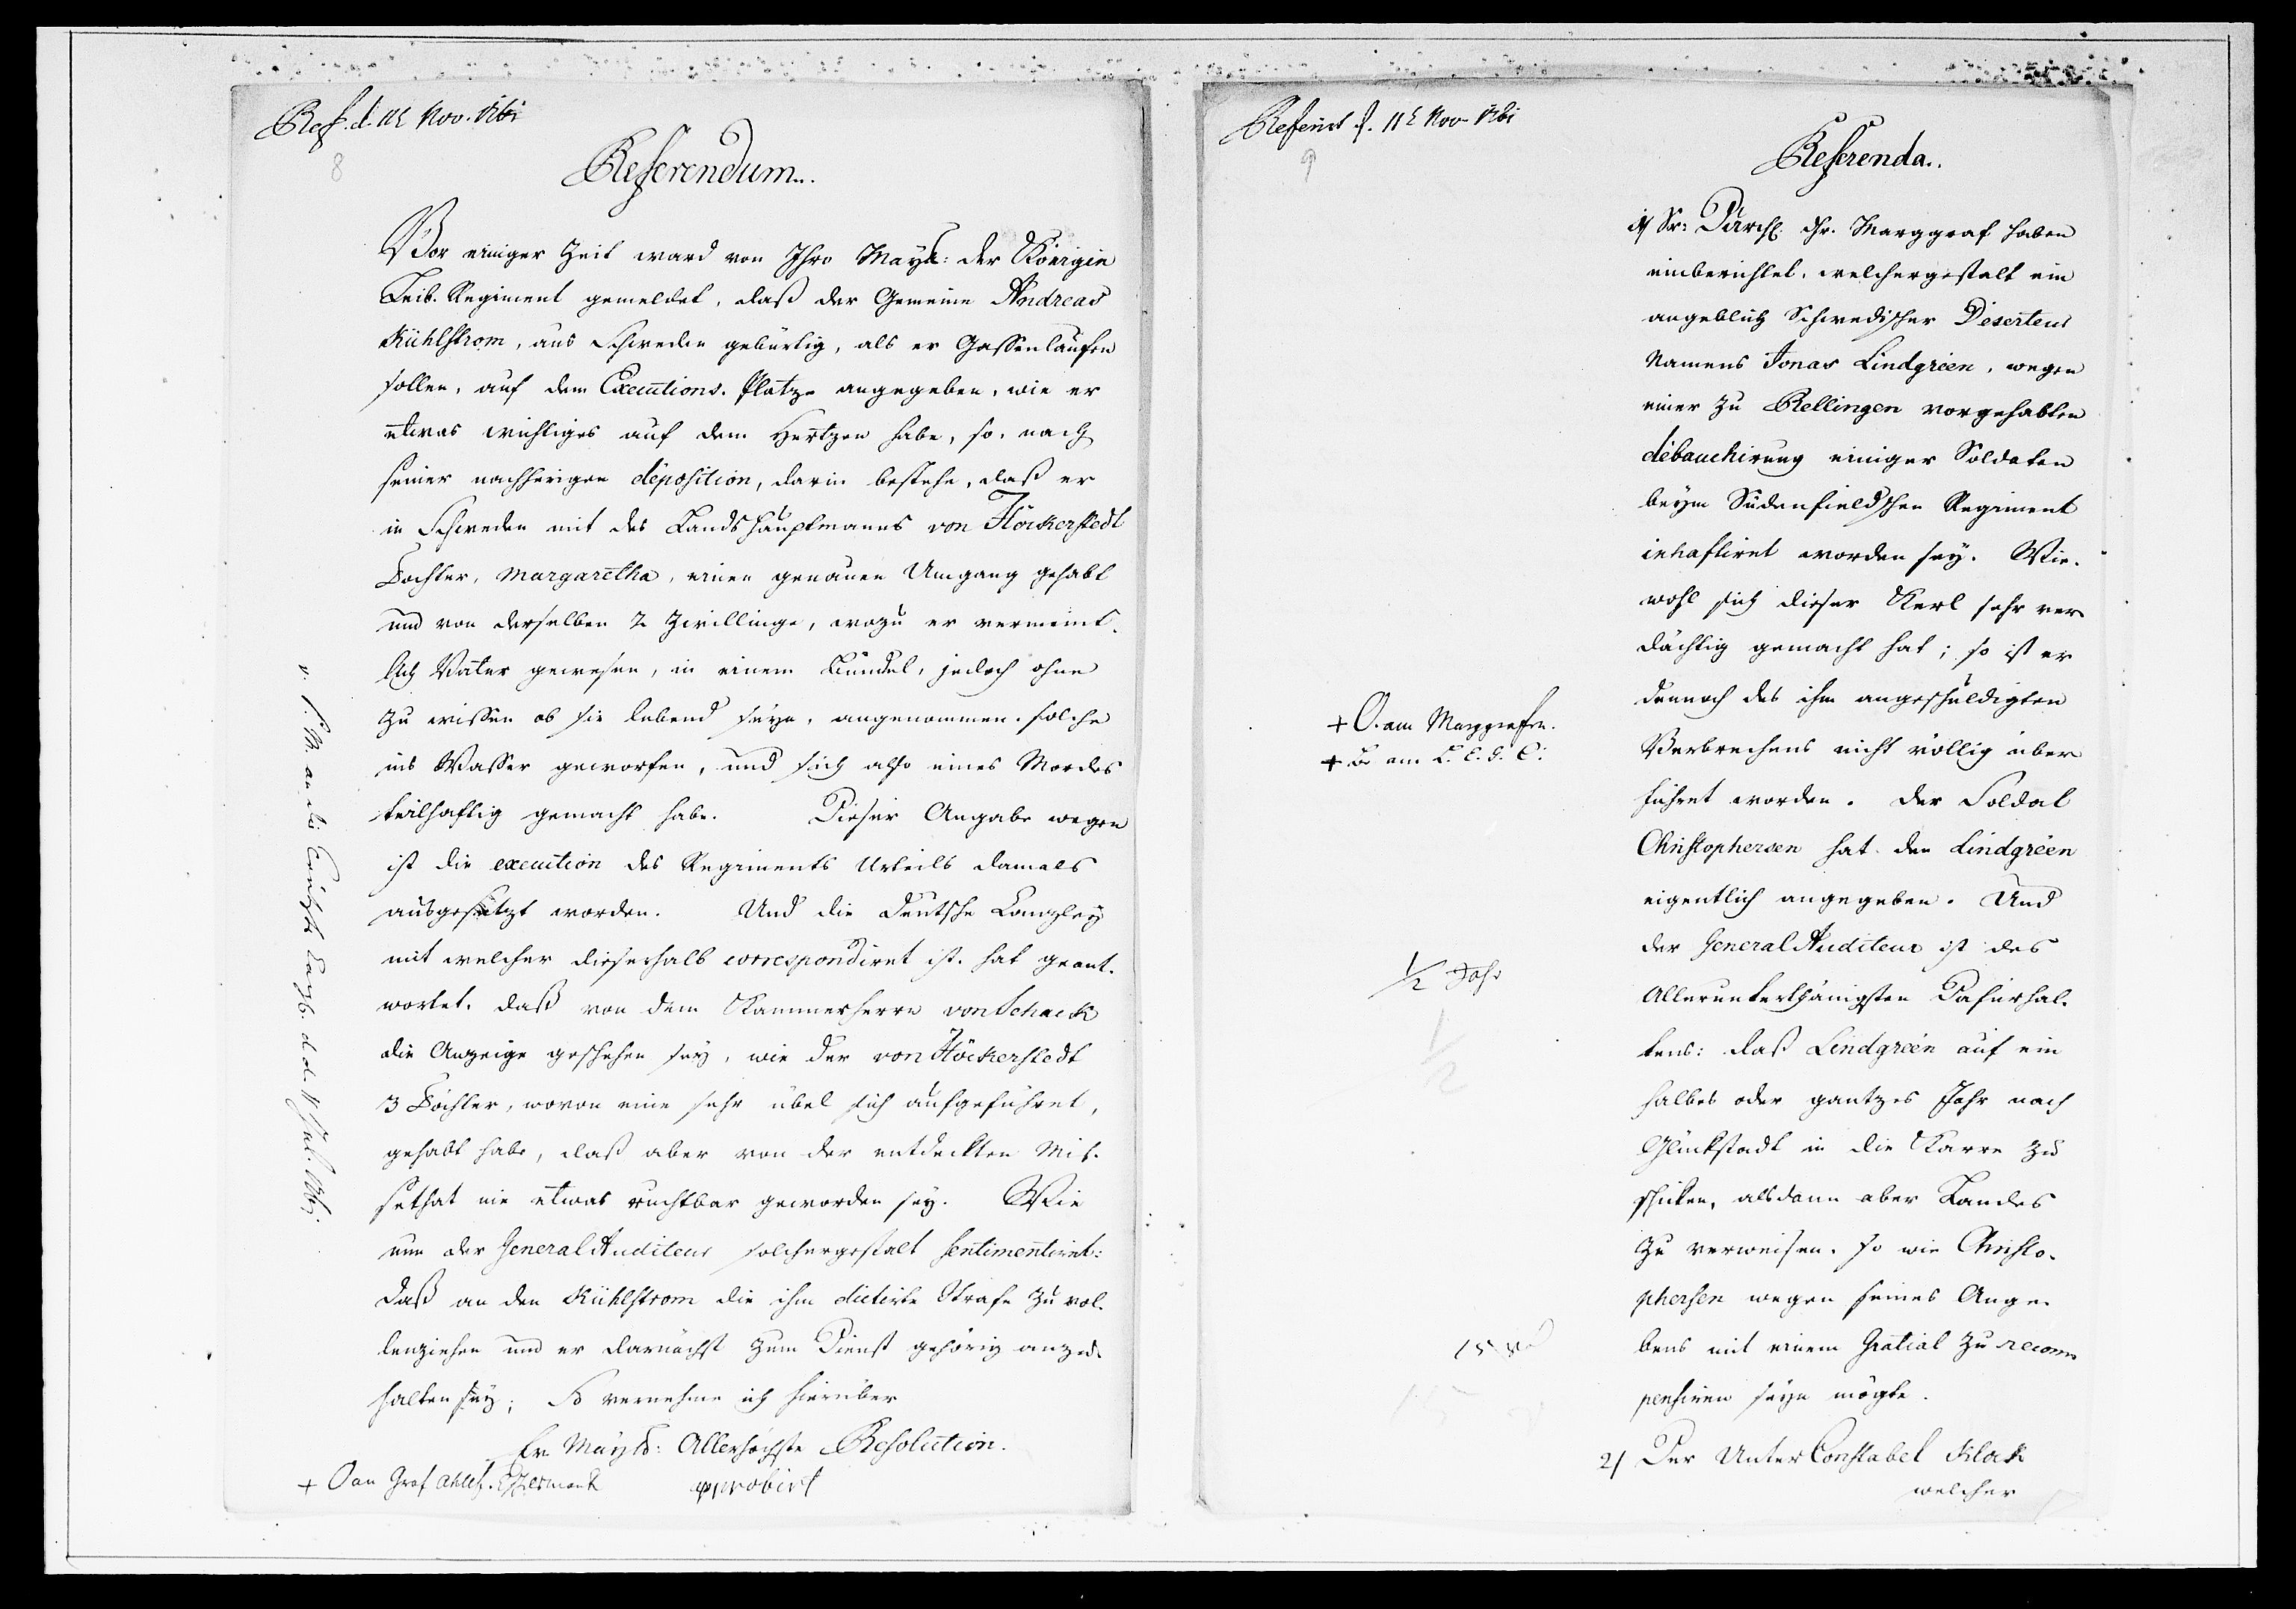 Ref. d. 11t Nov. 1761
8
Referendum.
Vor einiger Zeit ward von Ihro Mayt: der Königin
Leib-Regiment gemeldet, daß der Gemeine Andreas
Kühlstrom, aus Schweden gebürtig, als er Gassenlaufen
sollen, auf dem Executions-Platze angegeben, wie er
etwas wichtiges auf dem Hertzen habe, so, nach
seiner nachherigen deposition, darin bestehe, daß er
in Schweden mit des Landshauptmanns von Höckerstedt
Tochter, Margaretha, einen genauen Umgang gehabt
und von derselben 2 Zwillinge, wozu er vermeint-
lich Vater gewesen, in einem Bündel, jedoch ohne
zu wissen ob sie lebend seyn, angenommen, solche
ins Wasser geworfen, und sich also eines Mordes
teilhaftig gemacht habe. Dieser Angabe wegen
ist die execution des Regiments Urteils damals
ausgesetzt worden. Und die deutsche Canzley
mit welcher dieserhalb correspondiret ist, hat geant-
wortet, daß von dem Kammerherrn von Schack
die Anzeige geschehen sey, wie der von Höckerstedt
3 Töchter, wovon eine sehr übel sich aufgeführet,
gehabt habe, daß aber von der entdeckten Mis-
sethat nie etwas ruchtbar geworden sey. Wie
nun der General Auditeur solchergestalt sentimentiret:
daß an den Kühlstrom die ihm dictirte Strafe zu vol-
lenziehen und er darnächst zum Dienst gehörig anzu-
halten sey; So vernehme ich hierüber
Ew Mayts: Allerhöchste Resolution.
+ O an Graf Ahlef.
approbirt
Referirt d. 11t Nov. 1761
9
Referenda.
1/ Sr: Durchl. Hr. Marggraf haben
einberichtet, welchergestalt ein
angeblich Schwedischer Deserteur
Namens Jonas Lindgréen, wegen
einer zu Rellingen vorgehabten
debauchirung einiger Soldaten
beym Südenfieldschen Regiment
inhaftiret worden sey. Wie-
wohl sich dieser Kerl sehr ver
dächtig gemacht hat; so ist er
dennoch des ihm angeschuldigten
Verbrechens nicht völlig über
führet worden. Der Soldat
Christophersen hat den Lindgréen
eigentlich angegeben. Und
der General Auditeur ist des
Allerunterthänigsten Dafürhal-
tens: daß Lindgréen auf ein
halbes oder gantzes Jahr nach
Glückstadt in die Karre zu
schicken, alsdann aber Landes
zu verweisen, so wie Christo-
phersen wegen seines Ange-
bens mit einem Gratial zu recom-
pensiren seyn mögte.
2/ Der Unter Constabel Klock
welcher
+ O. an Marggrafen.
1/2 Jahr
1/2
15
15